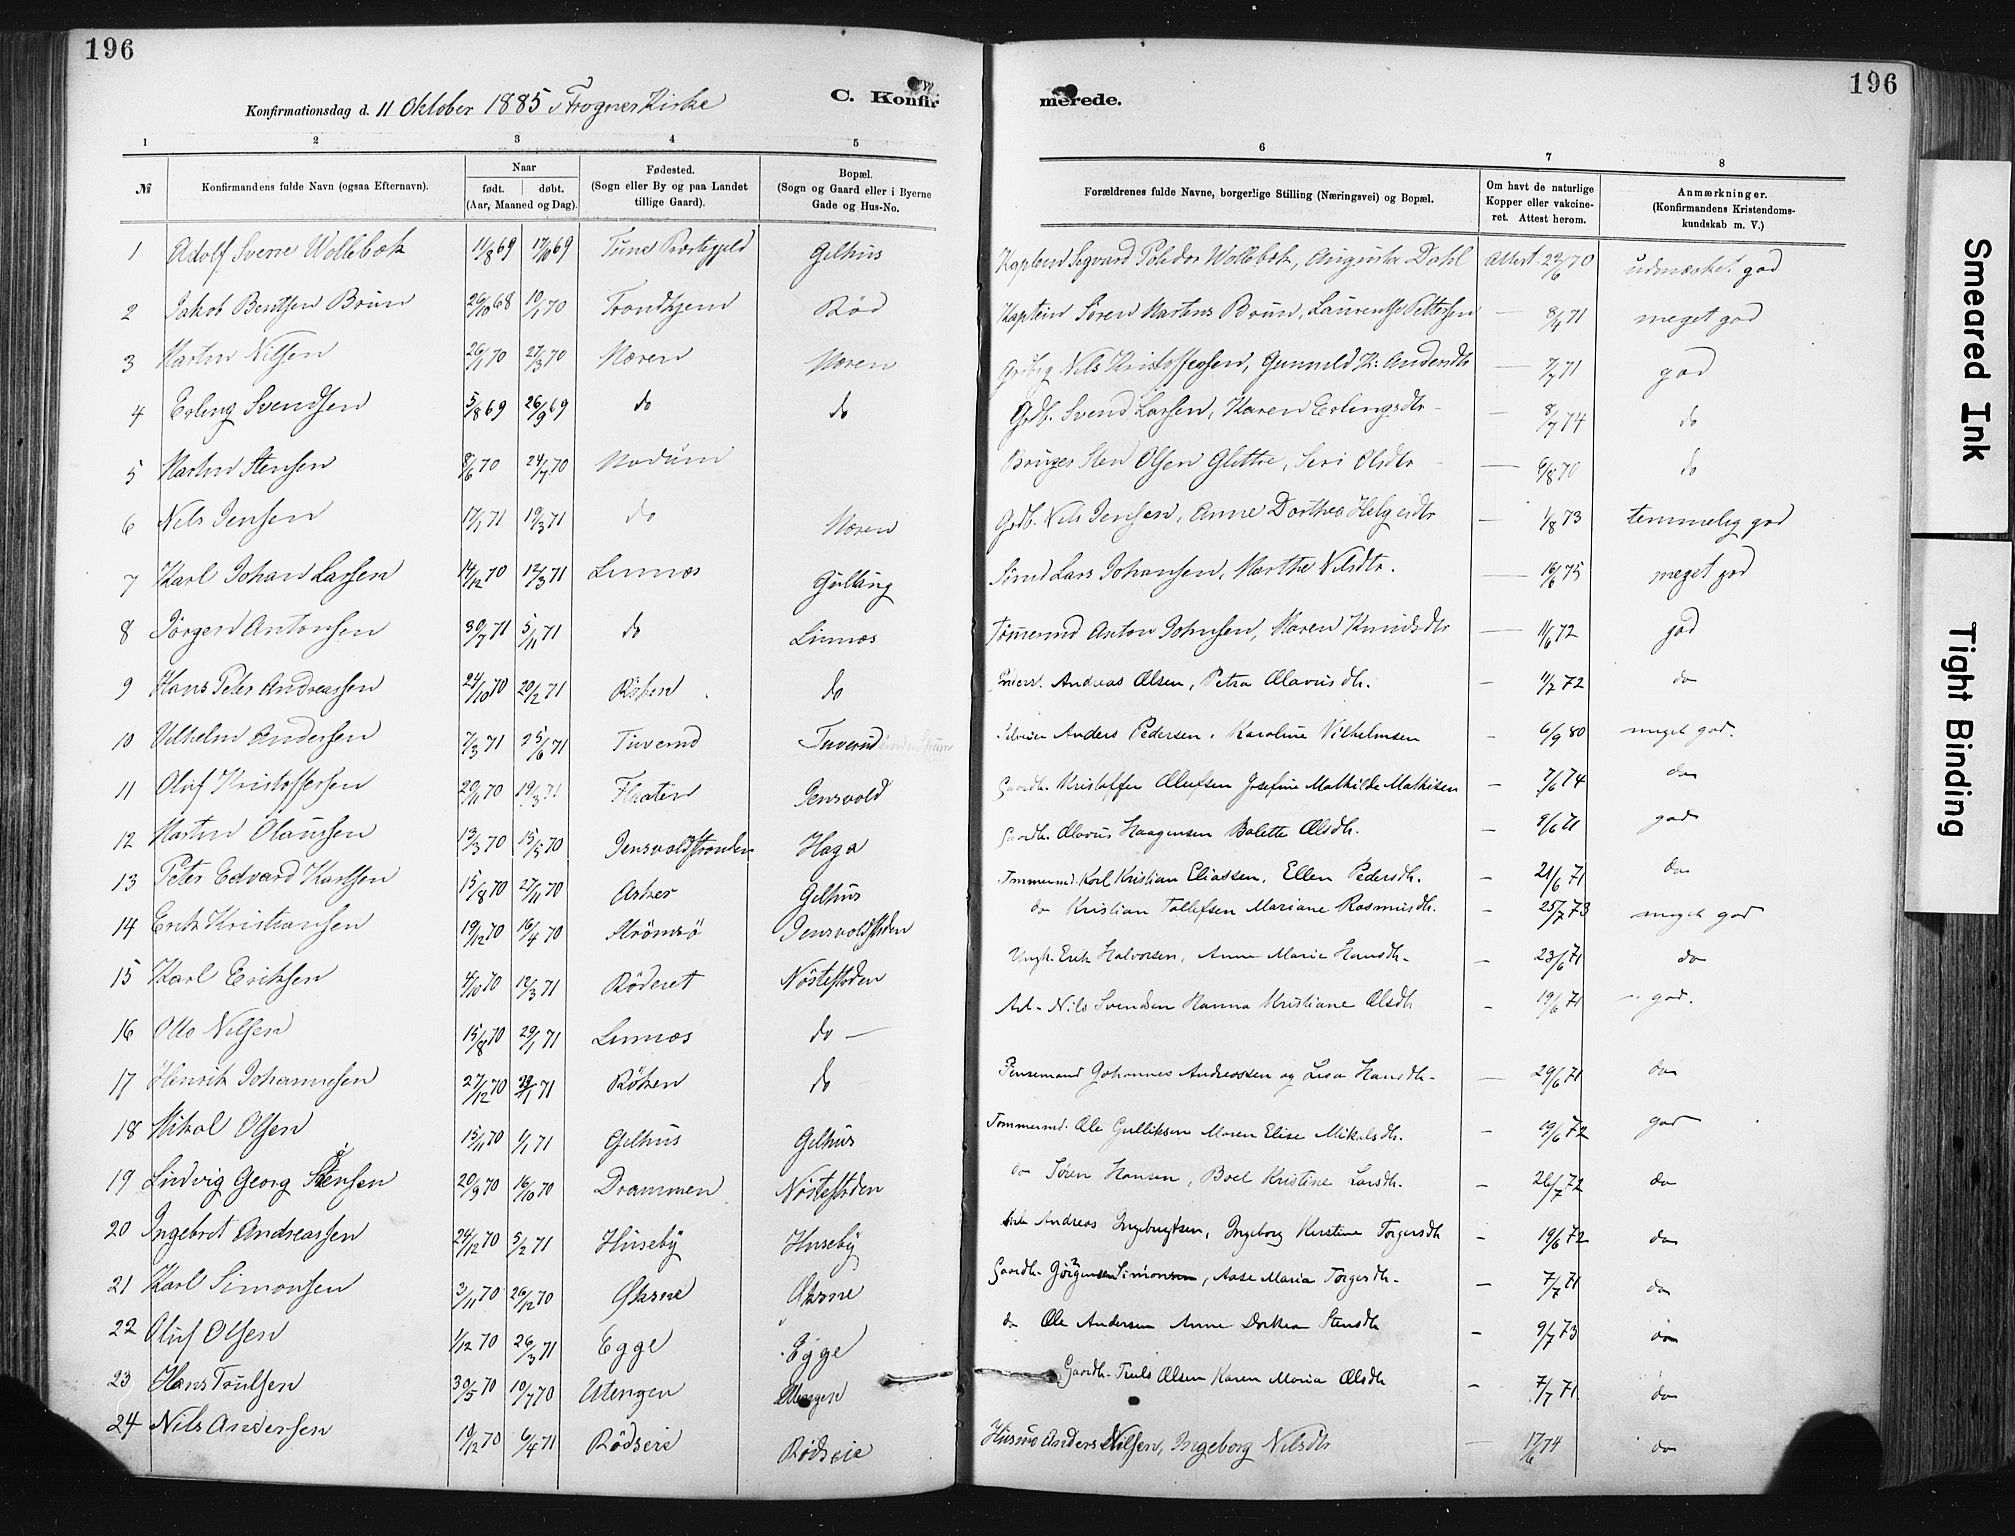 196
196
Konfirmationsdag d. 11 Oktober 1885 i Frogner Kirke
C. Konfir merede.
1 2 3 4 5 6 7 8
№ Konfirmandens fulde Navn (ogsaa Efternavn).
Naar
født. døbt.
(Aar, Maaned og Dag).
Fødested.
(Sogn eller By og paa Landet
tillige Gaard).
Bopæl.
(Sogn og Gaard eller i Byerne
Gade og Hus-No.
Forældrenes fulde Navne, borgerlige Stilling (Næringsvei) og Bopæl.
Om havt de naturlige
Kopper eller vakcine-
ret. Attest herom.
Anmærkninger.
(Konfirmandens Kristendoms-
kundskab m. V.)
1 Adolf Sverre Wollebæk 11/8 69 17/10 69 Tune Præstegjeld Gilhus Kaptein Segvard Wollebæk, Augusta Dahl Attest 22/6 70 udmærket god
2 Jakob Bentsen Brun 26/10 68 10/1 70 Trondhjem Rød Kaptein Søren Martens Brun, Laurentse Pettersen — 8/4 71 meget god
3 Martin Nilsen 26/1 70 27/3 70 Mæren Mæren Nils Kristoffersen, Gunnild K. Andersdtr — 7/7 71 god
4 Erling Svendsen 5/8 69 26/9 69 do do Grdb. Svend Larsen, Karen Erlingsdtr — 8/7 74 do
5 Martin Stensen 8/6 70 24/7 70 Modum Bruger Sten Olsen Glittre, Seri Olsdtr — 6/8 70 do
6 Nils Jensen 17/1 71 19/3 71 do Mæren Grdb. Nils Jensen, Anne Dorthea Helgesdtr — 1/8 73 temmelig god
7 Karl Johan Larsen 14/12 70 12/3 71 Linnæs Gullaug Lars Johansen, Marthe Nilsdtr. — 16/6 75 meget god
8 Jørgen Antonsen 30/7 71 5/11 71 do Linnæs Tømmermd Anton Johnsen, Maren Knudsdtr — 11/6 72 god
9 Hans Peter Andreassen 24/10 70 20/2 71 Røken do Andreas Olsen, Petra Olavusdtr. — 11/7 72 do
10 Vilhelm Andersen 7/3 71 25/6 71 Tuverud Tuverud Anders Pedersen, Karoline Vilhelmsen — 6/9 80 meget god.
11 Oluf Kristoffersen 20/11 70 19/3 71 Flaaten Jensvold Gaardb. Kristoffer Olufsen Josefine Mathilde Mathisen — 7/6 74 do
12 Martin Olaussen 13/3 70 15/5 70 Jensvoldstranden Haga Gaardb. Olavus Haagensen Bolette Olsdtr. — 9/6 71 god
13 Peter Edvard Karlsen 15/8 70 27/11 70 Asker Gilhus Tømmermd. Karl Kristian Eliassen, Ellen Pedersdtr. — 21/6 71 do
14 Erik Kristiansen 19/12 70 16/4 70 Strømsø Jensvoldstrden do Kristian Tollefsen Mariane Rasmusdtr. — 25/7 73 meget god
15 Karl Eriksen 4/10 70 12/3 71 Røderet Nøstestrden Ungk. Erik Halvorsen, Anne Marie Hansdtr — 23/6 71 do
16 Otto Nilsen 15/8 70 29/1 71 Linnæs do — Arb. Nils Svendsen Hanna Kristiane Olsdtr — 19/6 71 god.
17 Henrik Johannesen 27/12 70 22/1 71 Røken do Johannes Andreassen og Lisa Hansdtr — 29/6 71 do
18 Mikal Olsen 15/11 70 1/1 71 Gilhus Gilhus Tømmermd. Ole Gulliksen Maren Elise Mikalsdtr. — 19/6 72 god
19 Ludvig Georg Sørensen 20/9 70 16/10 70 Drammen Nøstestrden do Søren Hansen, Boel Kristine Larsdtr. — 26/7 72 do
20 Ingebret Andreassen 24/12 70 5/2 71 Huseby Huseby Andreas Ingebretsen, Ingeborg Kirstine Torgersdtr — 19/6 72 do
21 Karl Simonsen 3/11 70 26/12 70 Øksne Øksne Gaardb. Simon, Aase Maria Torgersdtr. — 7/7 71 do
22 Oluf Olsen 1/12 70 26/3 71 Egge Egge do Ole Andersen Anne Dorthea Stensdtr — 9/7 73 do
23 Hans Trulsen 30/5 70 10/7 70 Utengen Utengen Gaardb. Truls Olsen Karen Maria Olsdtr — 7/7 71 do
24 Nils Andersen 10/12 70 6/4 71 Rødseie Rødseie Husmd Anders Nilsen, Ingeborg Nilsdtr — 17/6 74 do
Smeared Ink
Tight Binding